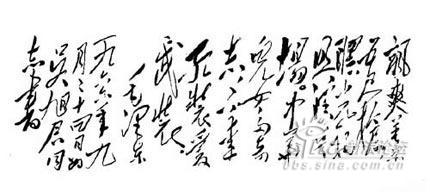 飒爽英姿
五尺枪
曙光初
照演兵
场。中华
儿女多奇
志不爱
红装爱
武装
毛泽东
一九六六年九
月二十四日
吴旭君同
志书
bbs.sina.com.cn